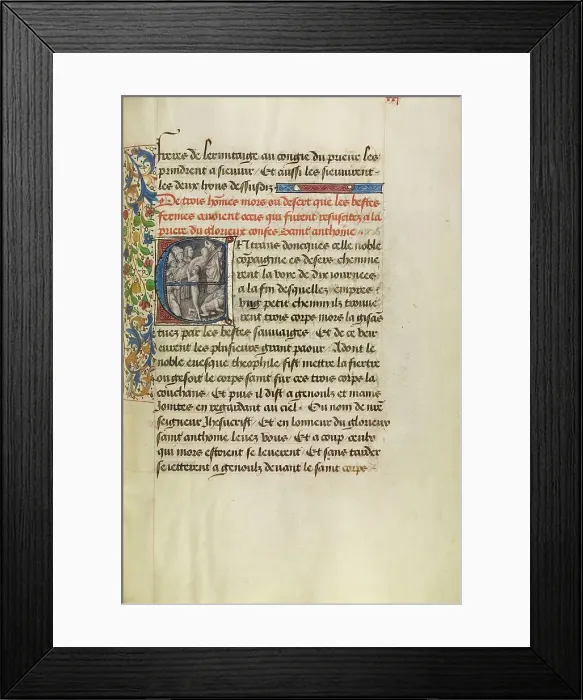 freres de lermitaige au congie du prieur les
prindrent a sieuuir Et aussi les sieuuirent
les deux lyons dessusdis
De trois hommes mors ou desert que les bestes
fermes auoient occis qui furent resuscitez a la
priere du glorieux confes saint anthoine
EN trans doncques celle noble
compaignie es desers chemine
rent la voye de dix iournees
a la fin desquelles empres
vng petit chemin ilz trouue
rent trois corps mors la gisās
tuez par les bestes sauuaiges Et de ce veir
eurent les plusieurs grant paour Adont le
noble euesque theophile fist mettre la fiertre
ou gesoit le corps saint sur ces trois corps la
couchans Et puis il dist a genoulz et mains
Jointes en regardant au ciel Ou nom de nr̄e
seigneur Jhesucrist Et en lonneur du glorieux
saint anthoine leuez vous Et a coup ceulx
qui mors estoient se leuerent Et sans tarder
se ietterent a genoulz deuant le saint corps